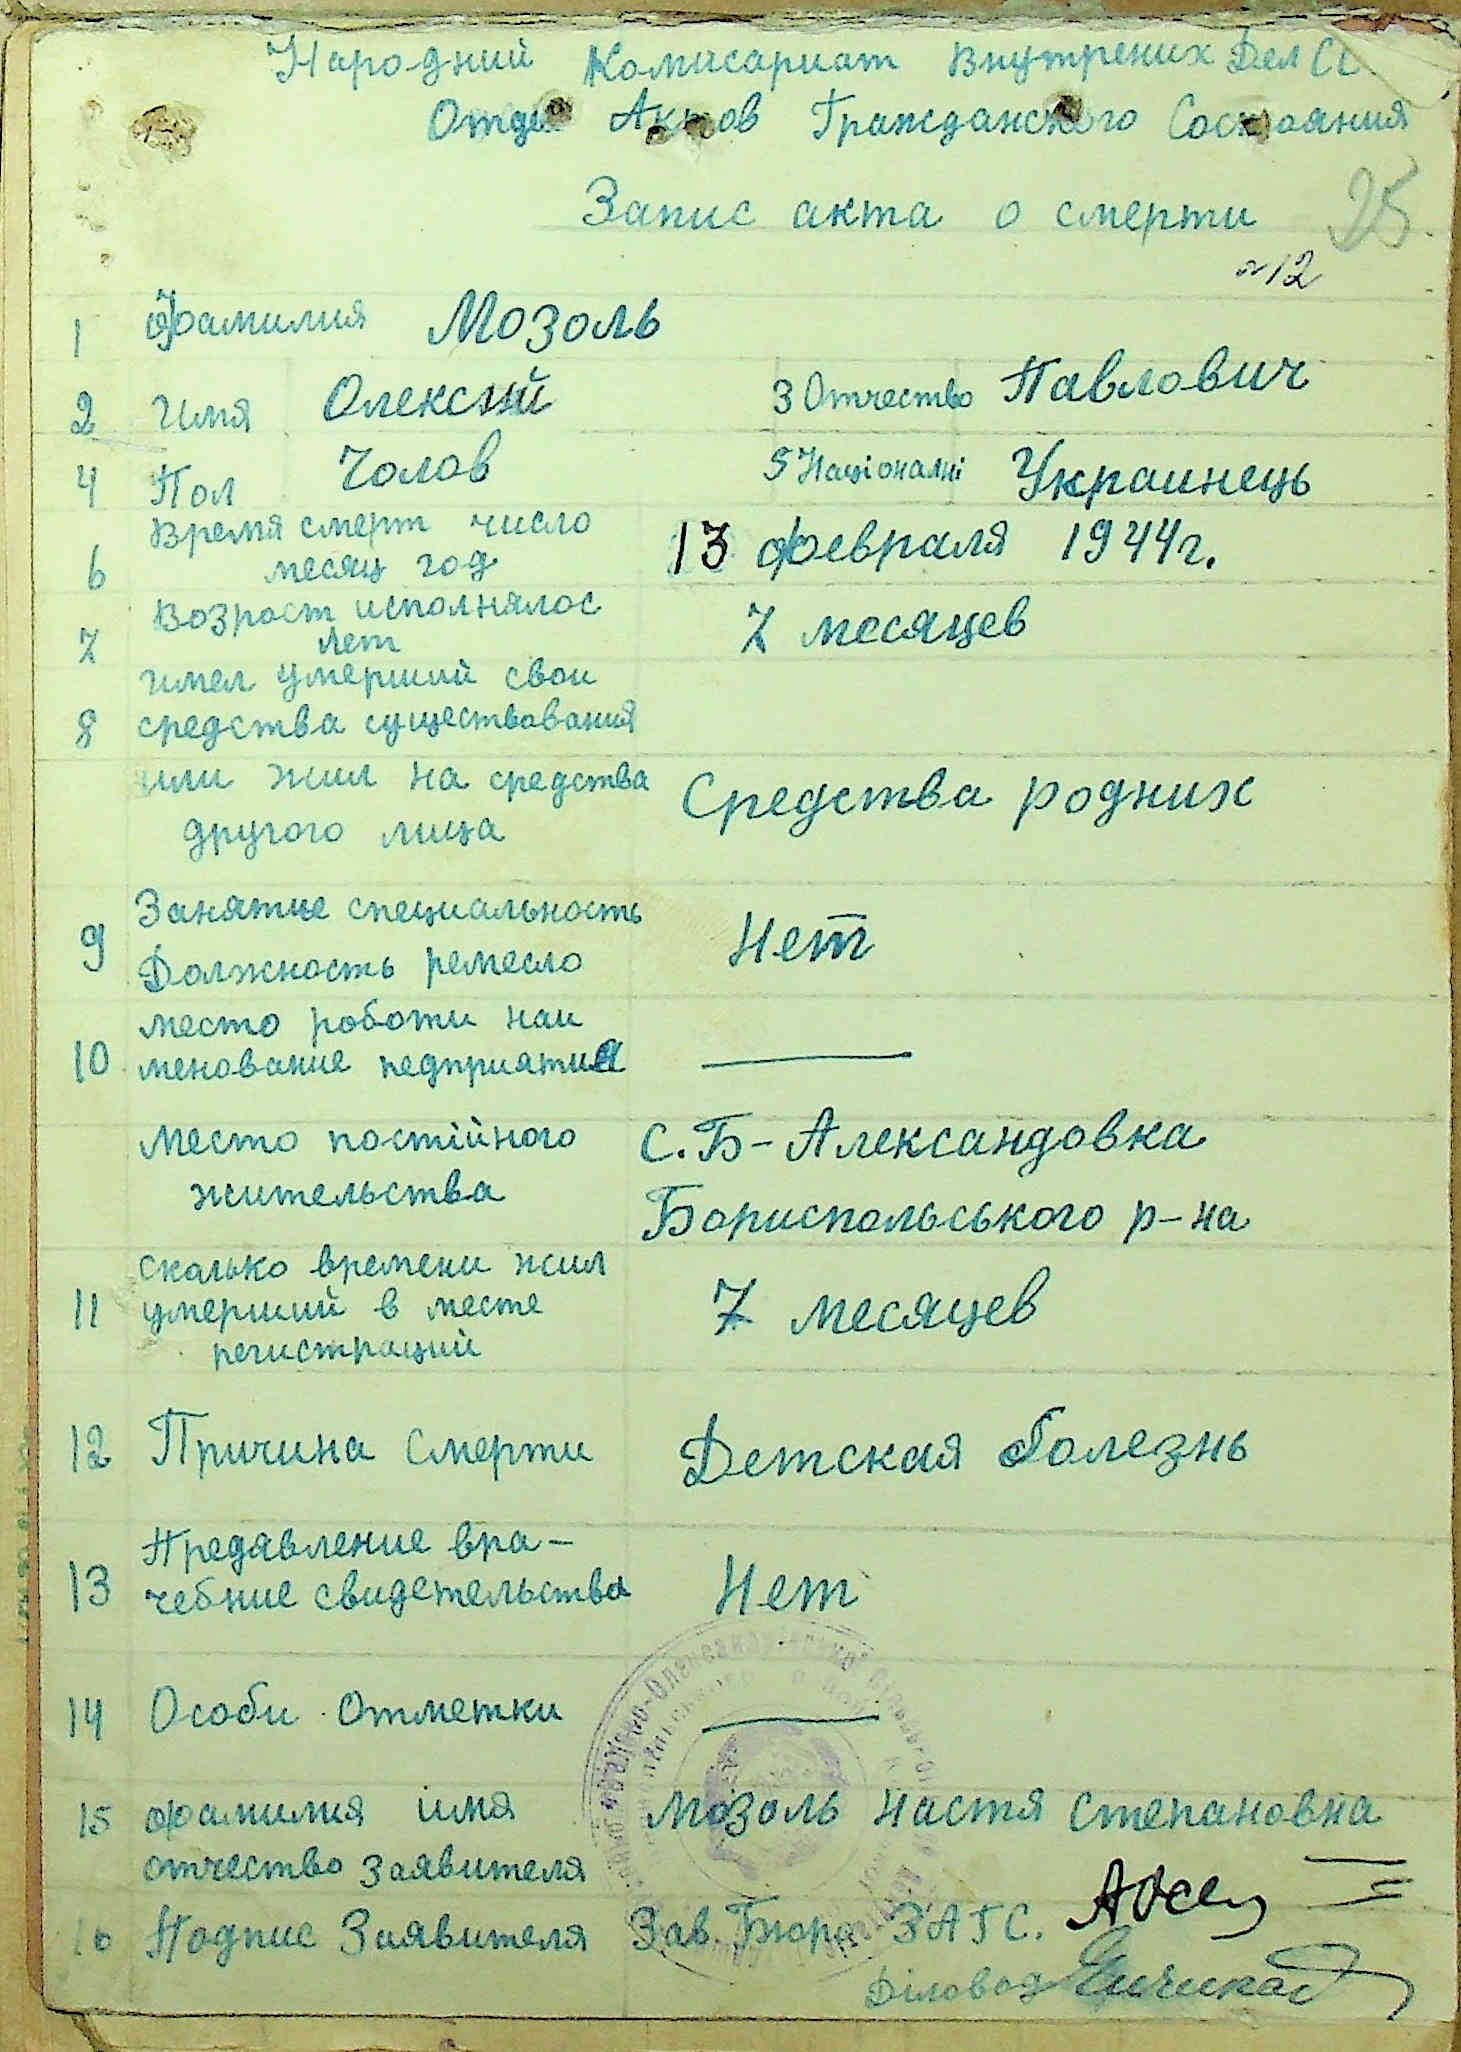 Народний Комисариат Внутрених Дел СС
Отдел Актов Гражданского Состояния
Запис акта о смерти
25
№12
1 Фамилия Мозоль
2 Имя Олексий 3 Отчество Павлович
4 Пол Чолов 5 Націоналні Украинець
Время смерт число
6 месяц год 13 февраля 1944г.
Возраст исполнялос
7 лет 7 месяцев
имел умерший свои
8 средства существования
или жил на средства Средства родних
другого лица
Занятие специальность
9 Должность ремесло Нет
место роботи наи
10 менование педприятия —
Место постійного С. Б-Александовка
жительства Бориспольського р-на
сколько времени жил
11 умерший в месте 7 месяцев
регистраций
12 Причина смерти Детская болезнь
Предявление вра-
13 чебние свидетельства Нет
14 Особи Отметки —
15 фамилия имя Мозоль Настя Степановна
отчество заявителя
16 Подпис Заявителя Зав. Бюро ЗАГС.
Діловод